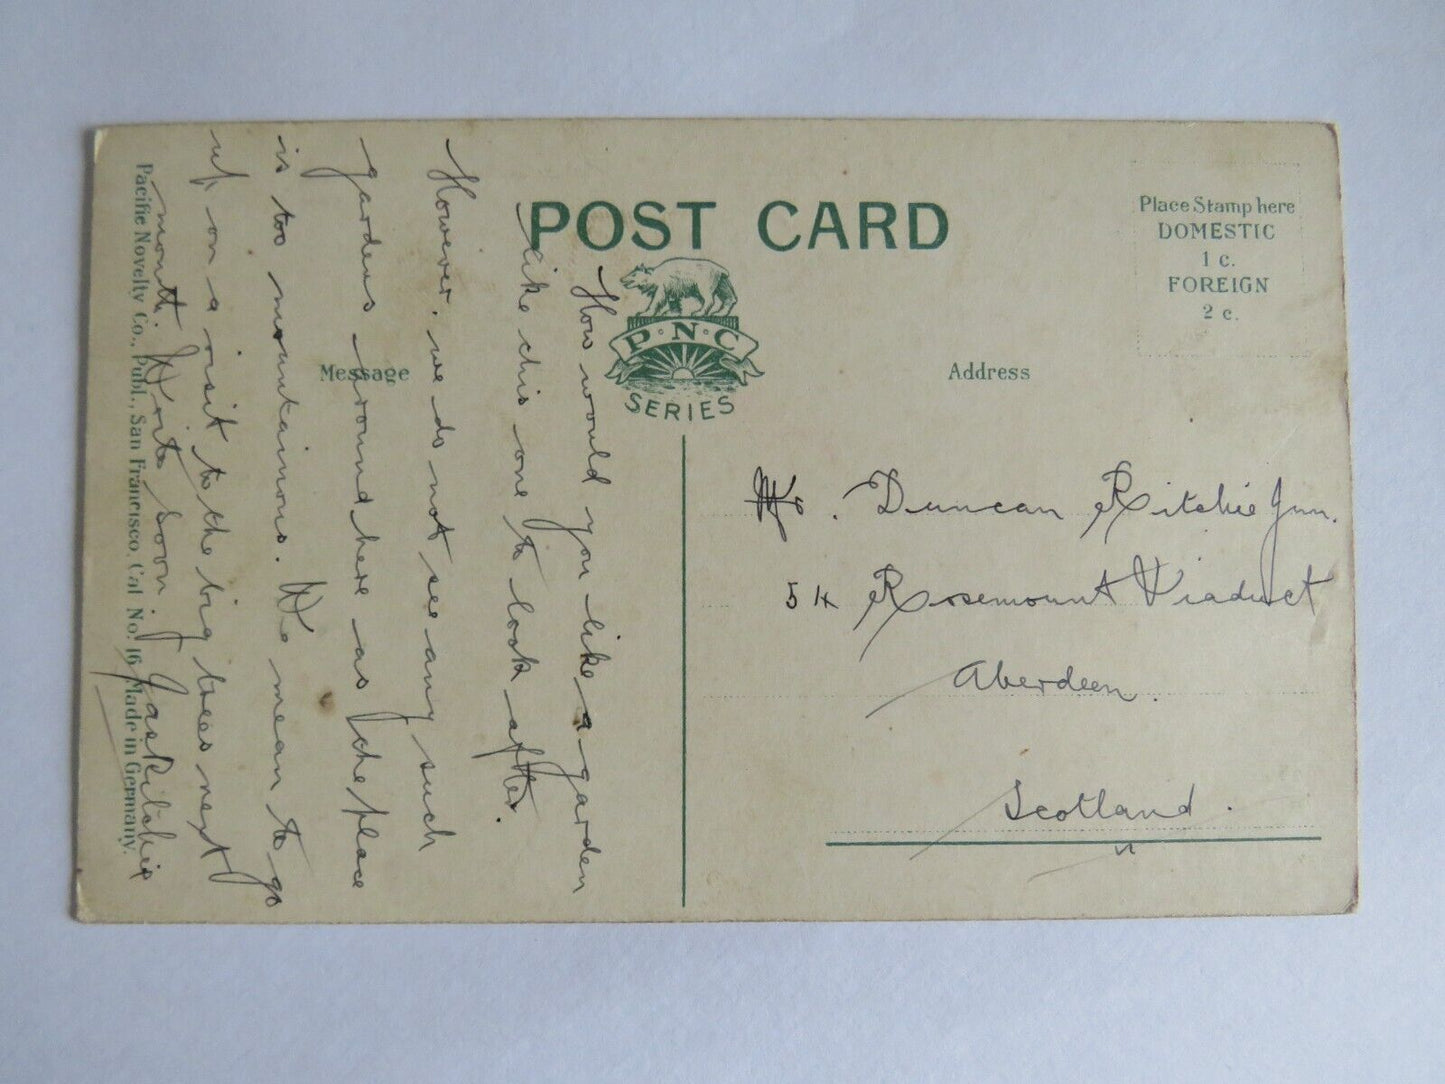 POST CARD
Place Stamp here
DOMESTIC
1 c.
FOREIGN
2 c.
P·N·C
SERIES
Message
Address
How would you like a garden
like this one to look after.
However, we do not see any such
gardens around here as the place
is too mountainous. We mean to go
up on a visit to the big trees next
month. Write soon. Jas Ritchie
Mr. Duncan Ritchie Jun.
54 Rosemount Viaduct
Aberdeen.
Scotland.
Pacific Novelty Co., Publ., San Francisco, Cal No. 16 Made in Germany.